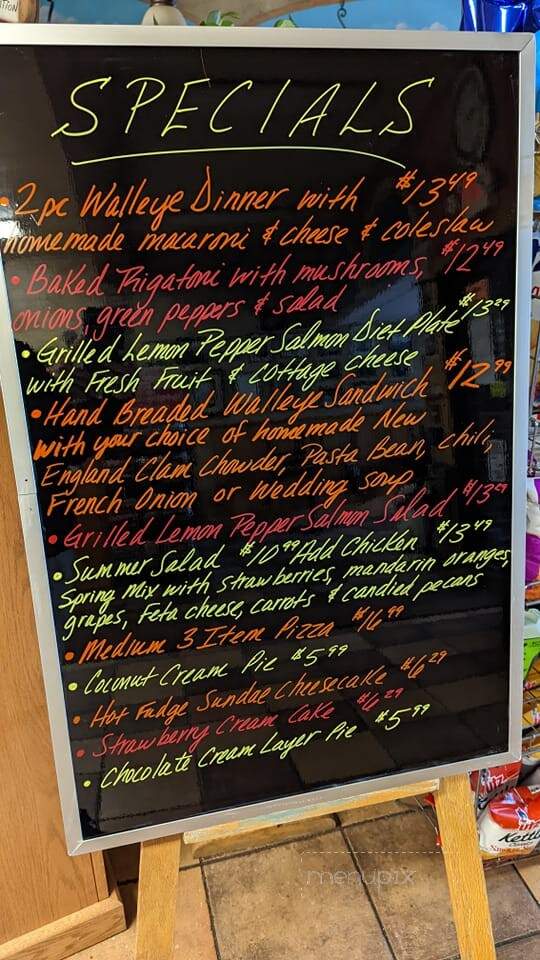 SPECIALS
• 2pc Walleye Dinner with $13.49
homemade macaroni & cheese & coleslaw
• Baked Rigatoni with mushrooms, $12.49
onions, green peppers & salad
• Grilled Lemon Pepper Salmon Diet Plate $13.29
with Fresh Fruit & cottage cheese
• Hand Breaded Walleye Sandwich $12.99
with your choice of homemade New
England Clam Chowder, Pasta Bean, chili,
French Onion or Wedding soup
• Grilled Lemon Pepper Salmon Salad
• Summer Salad $10.99 Add Chicken $13.49
Spring Mix with strawberries, mandarin oranges,
grapes, Feta cheese, carrots & candied pecans
• Medium 3 Item Pizza $16.99
• Coconut Cream Pie $5.99
• Hot Fudge Sundae Cheesecake $6.29
• Strawberry Cream Cake $6.29
• Chocolate Cream Layer Pie $5.99
Utz
Kettle
menupix